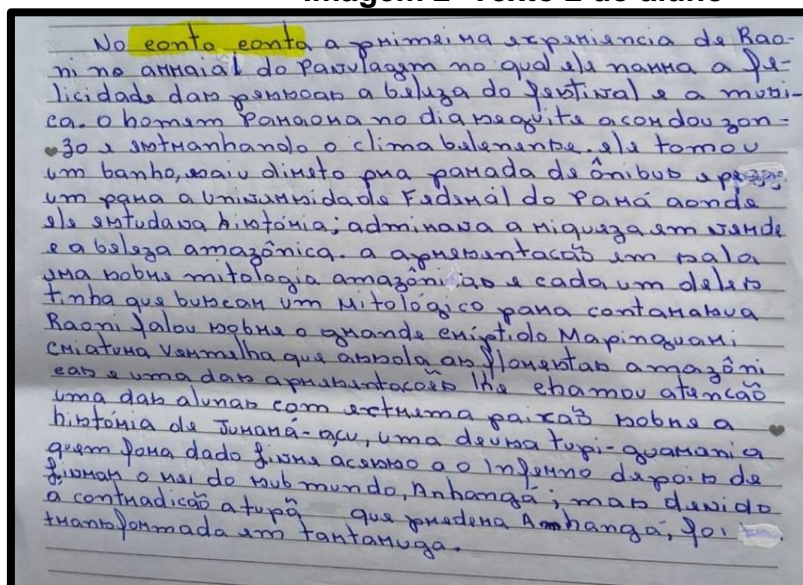 Imagem 2- Texto 2 do aluno
No conto conta a primeira experiencia de Rao-
ni no arraial do Pavulagem no qual ele narra a fe-
licidade das pessoas a beleza do festival e a musi-
ca. o homem Paraora no dia seguite acordou zon-
zo e estranhando o clima belenense. ele tomou
um banho, saiu direto pra parada de ônibus e
um para a universidade Federal do Pará aonde
ele estudava história; admirava a riqueza em verde
e a beleza amazônica. a apresentacaõ em sala
era sobre mitologia amazôni as e cada um deles
tinha que buscar um Mitológico para contar
Raoni falou sobre o grande criptido Mapinguari
criatura vermelha que assola as florestas amazôni
cas e uma das apresentacoẽs lhe chamou atencaõ
uma das alunas com extrema paixaõ sobre a
história de Jurará-açu, uma deusa tupi-guarania
quem fora dado livre acesso a o Inferno depois de
o rei do submundo, Anhangá; mas devido
a contradicaõ a tupâ que predera Amhangá, foi
transformada em tartaruga.